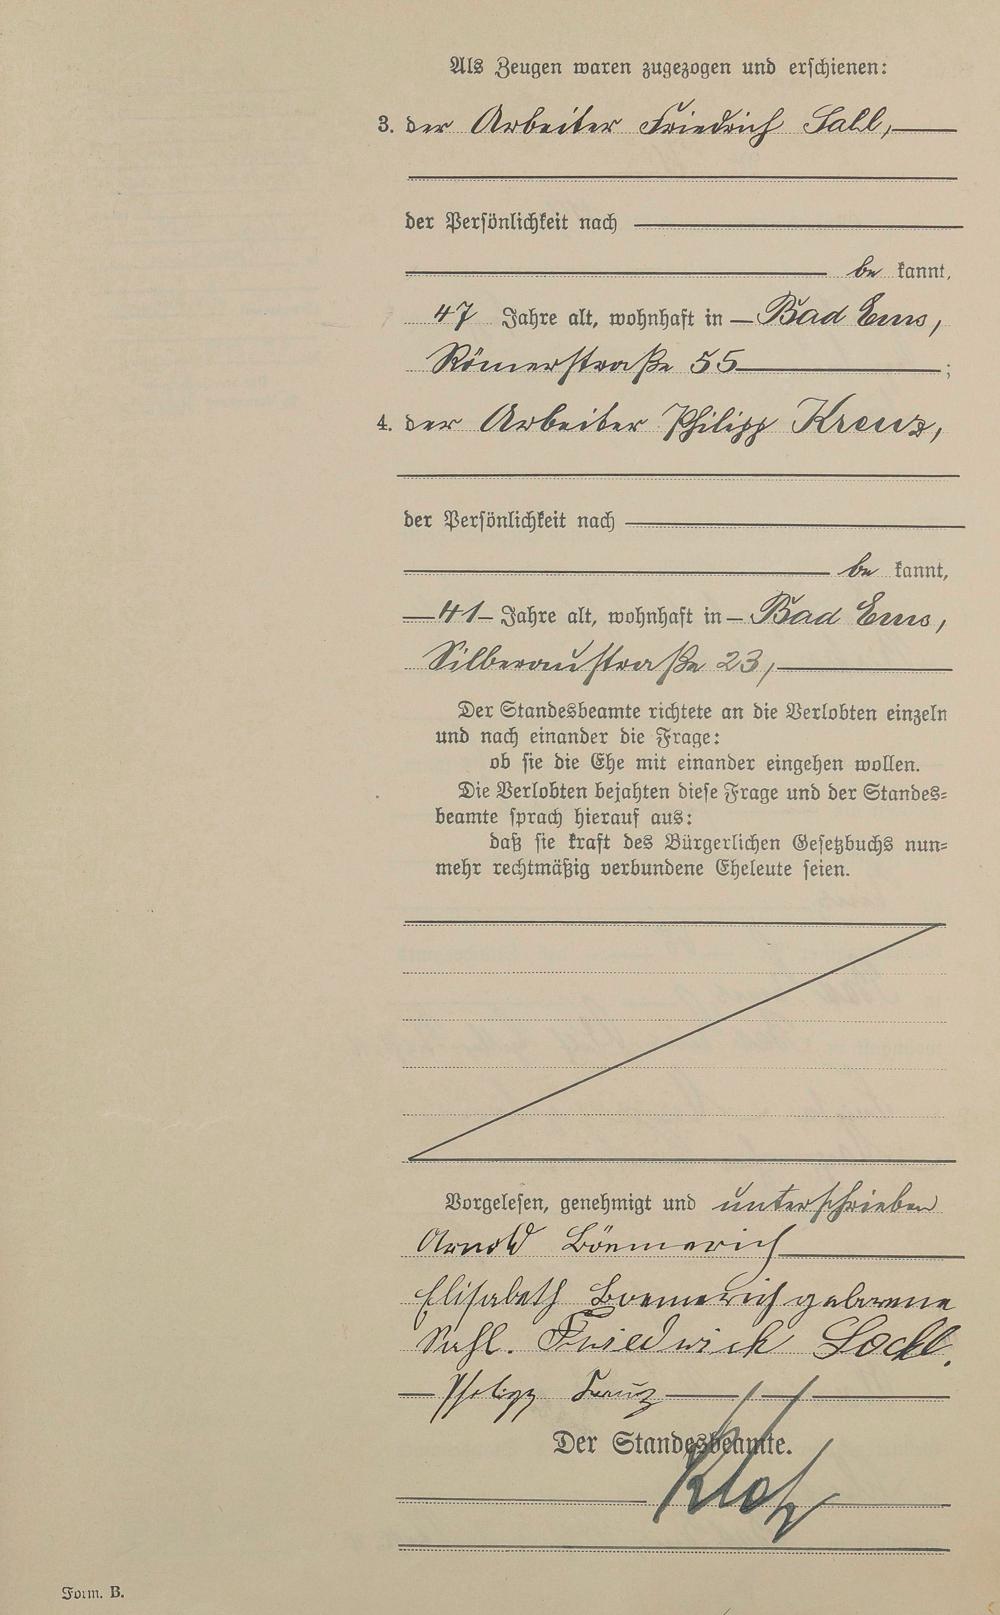 Als Zeugen waren zugezogen und erschienen:
3. der Arbeiter Friedrich Sahl,
der Persönlichkeit nach
be kannt,
47 Jahre alt, wohnhaft in Bad Ems,
Römerstraße 55 ;
4. der Arbeiter Philipp Kreuz,
der Persönlichkeit nach
be kannt,
41 Jahre alt, wohnhaft in Bad Ems,
Silberaustraße 23,
Der Standesbeamte richtete an die Verlobten einzeln
und nach einander die Frage:
ob sie die Ehe mit einander eingehen wollen.
Die Verlobten bejahten diese Frage und der Standes-
beamte sprach hierauf aus:
daß sie kraft des Bürgerlichen Gesetzbuchs nun-
mehr rechtmäßig verbundene Eheleute seien.
Vorgelesen, genehmigt und unterschrieben
Arnold Böemerich
Elisabeth Boemerich geborene
Friedrich
Philipp Kreuz
Der Standesbeamte.
Klotz
Form. B.